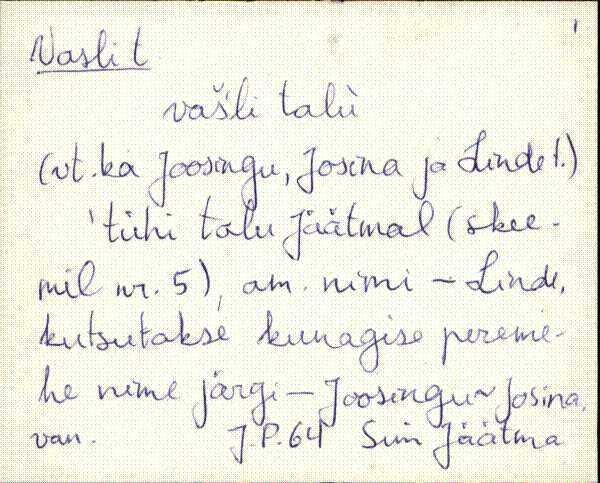 Vasli t.
vašli talù
(vt. ka Joosingu, Josina ja Linde t.)
'tühi talu Jäätmal (skee-
mil nr. 5), am. nimi - Linde,
kutsutakse kunagise pereme-
he nime järgi - Joosingu ~ Josina,
van. J.P. 64 Sim Jäätma